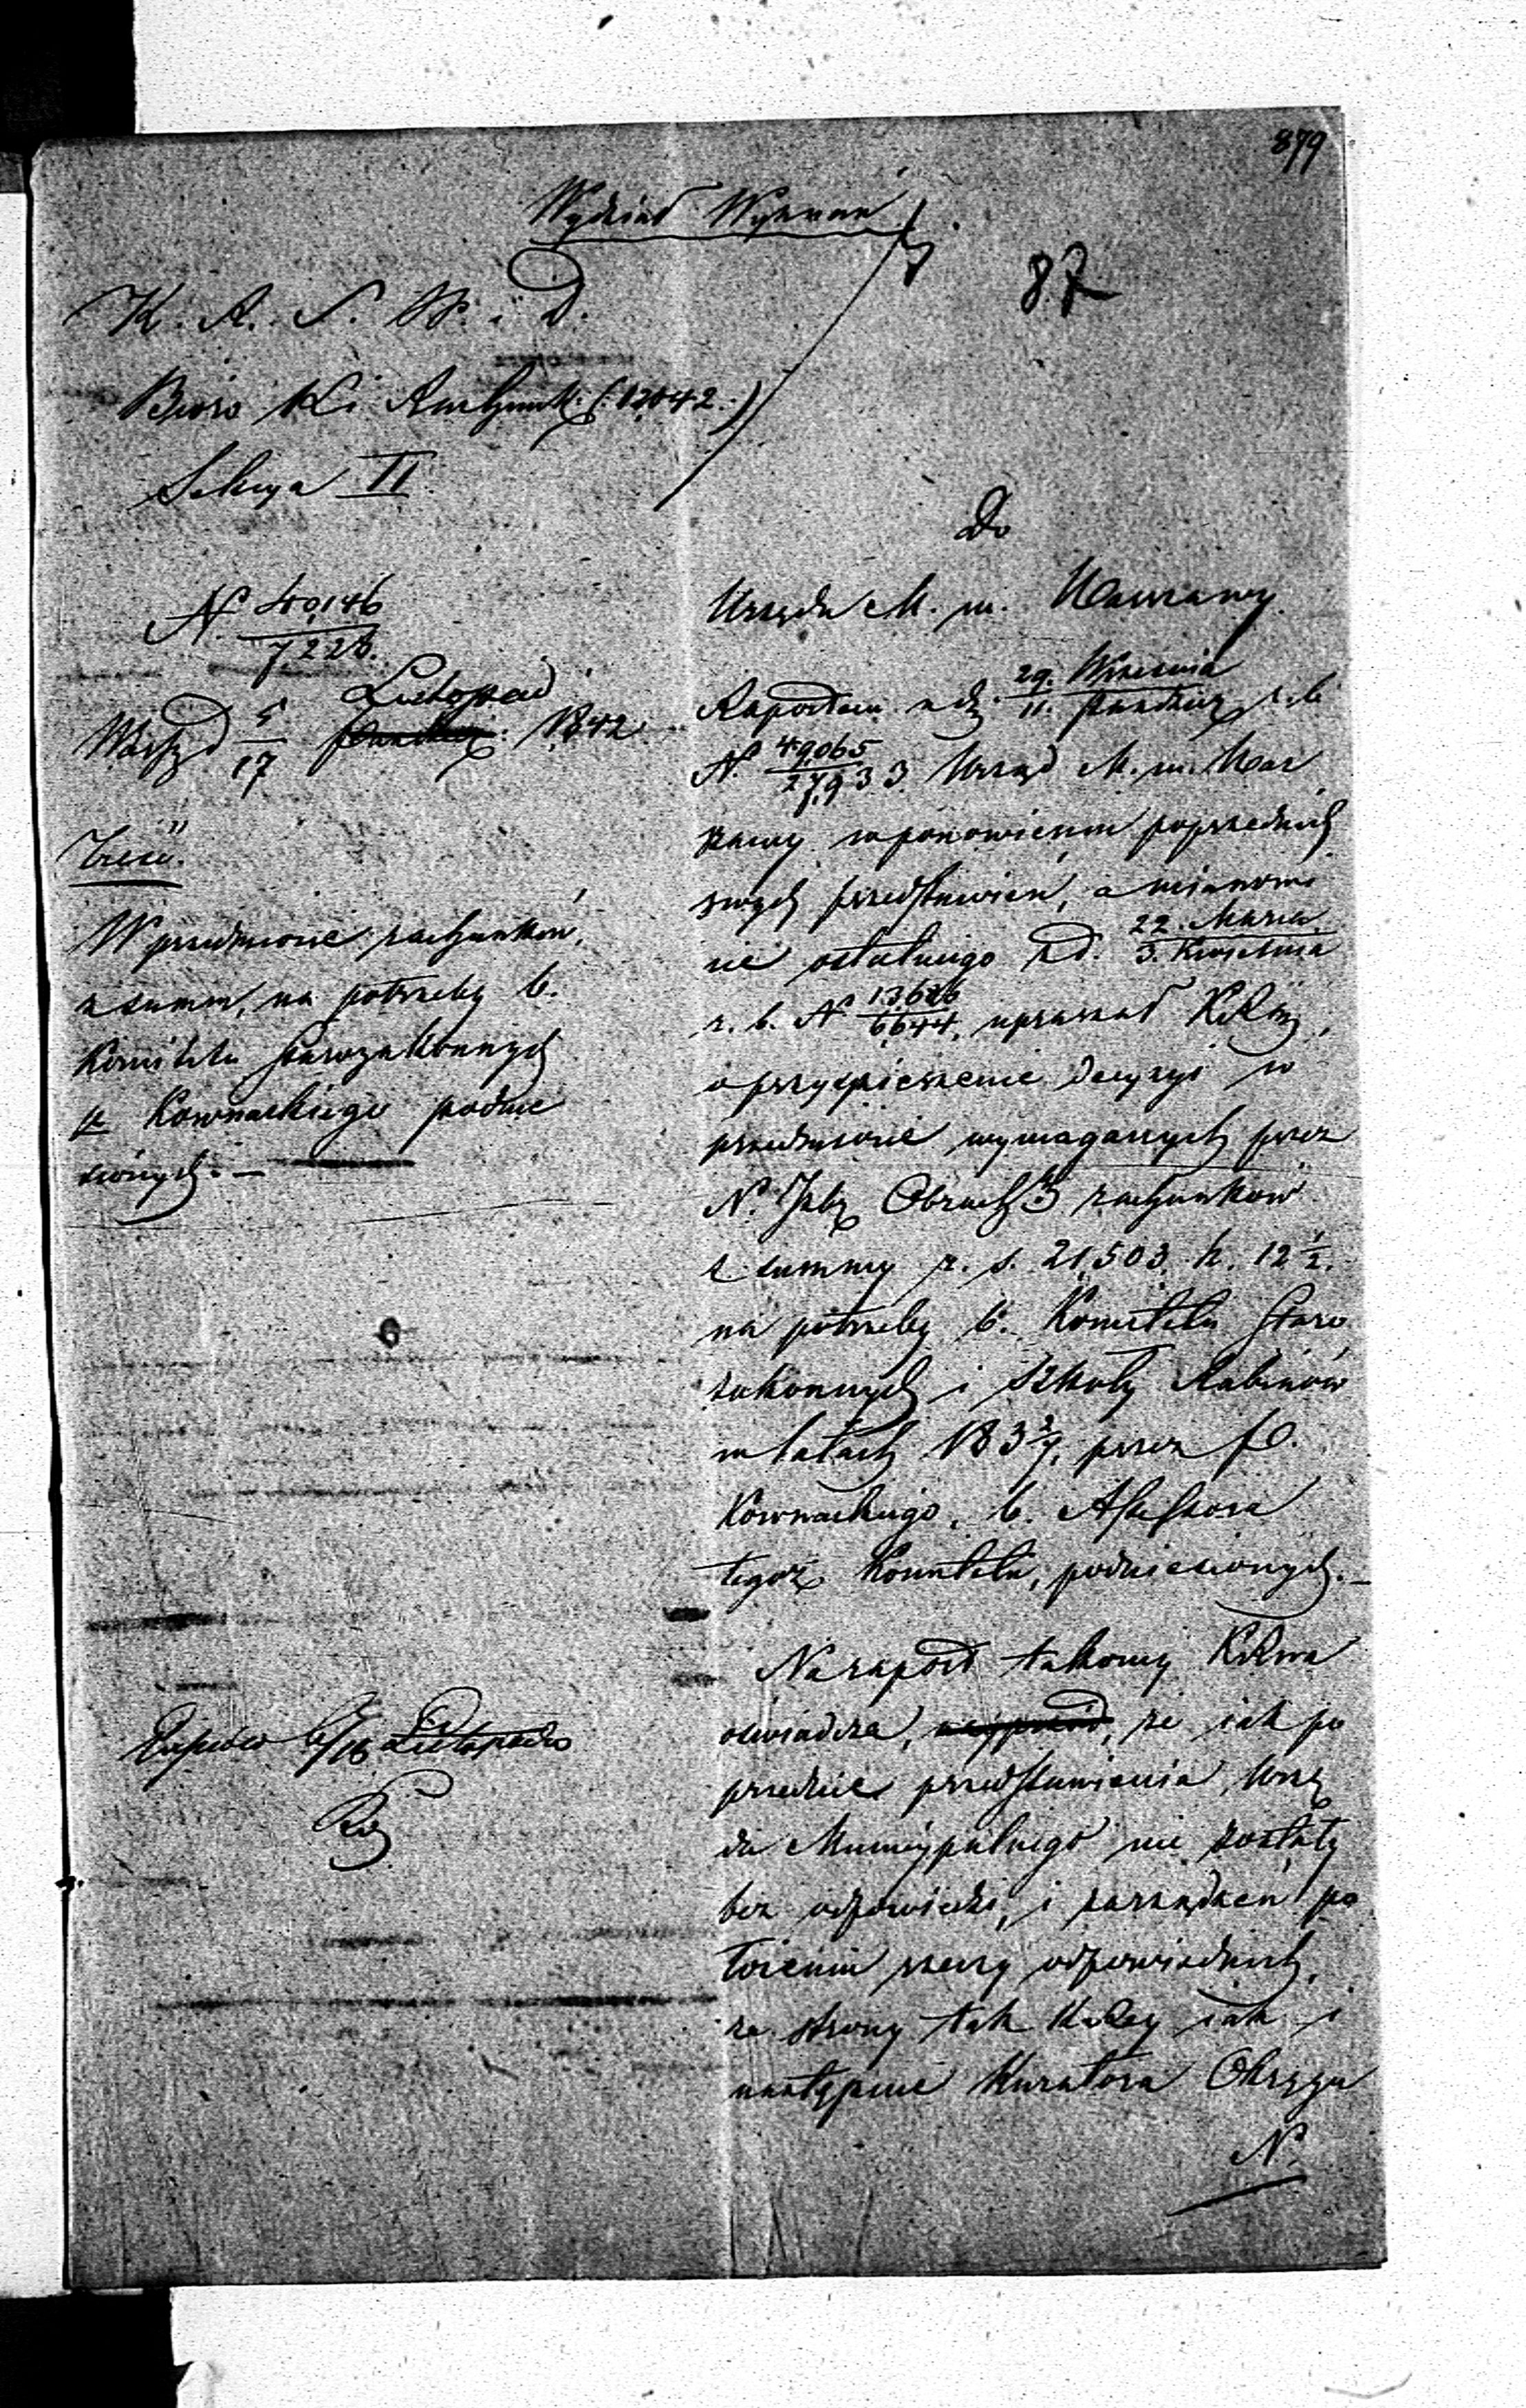 879
Wydział Wyznań
87
K. R. S. W. i D.
Biuro Ki Rachunk: (:12042:)
Sekcya II
N. 40146/7,226.
Listopad
Warsz d 5/17 1842
Treść.
W przedmiocie rachunków,
z summ, na potrzeby b.
Komitetu Starozakonnych
p. Kownackiego podnie
sionych. —
Do
Urzędu M. m. Warszawy
Raportem z d. 29. Września/11. Paździer r. b.
N. 49,065/27,933 Urząd M. m. War
szawy w ponowieniu poprzednich
swych przedstawień, a mianowi
cie ostatniego z d. 22. Marca/3. Kwietnia
r. b. N 13,626/6,644, upraszał KRsą,
o przyspieszenie decyzyi w
przedmiocie wymaganych przez
N. Izbę Obrach: rachunków
z summy r. s. 21,503 k. 12 1/2.
na potrzeby b. Komitetu Staro
zakonnych i Szkoły Rabinów
w latach 183 2/7, przez P.
Kownackiego, b. Assessora
tegoż Komitetu, podniesionych. —
Na raport takowy KRwa
oświadcza, że jak po
przednie przedstawienia Urzę
du Municypalnego nie zostały
bez odpowiedzi, i zarządzeń po
łożeniu rzeczy odpowiednich,
ze strony tak KRey jak i
następnie Kuratora Okręgu
N.
6/18 Listopada